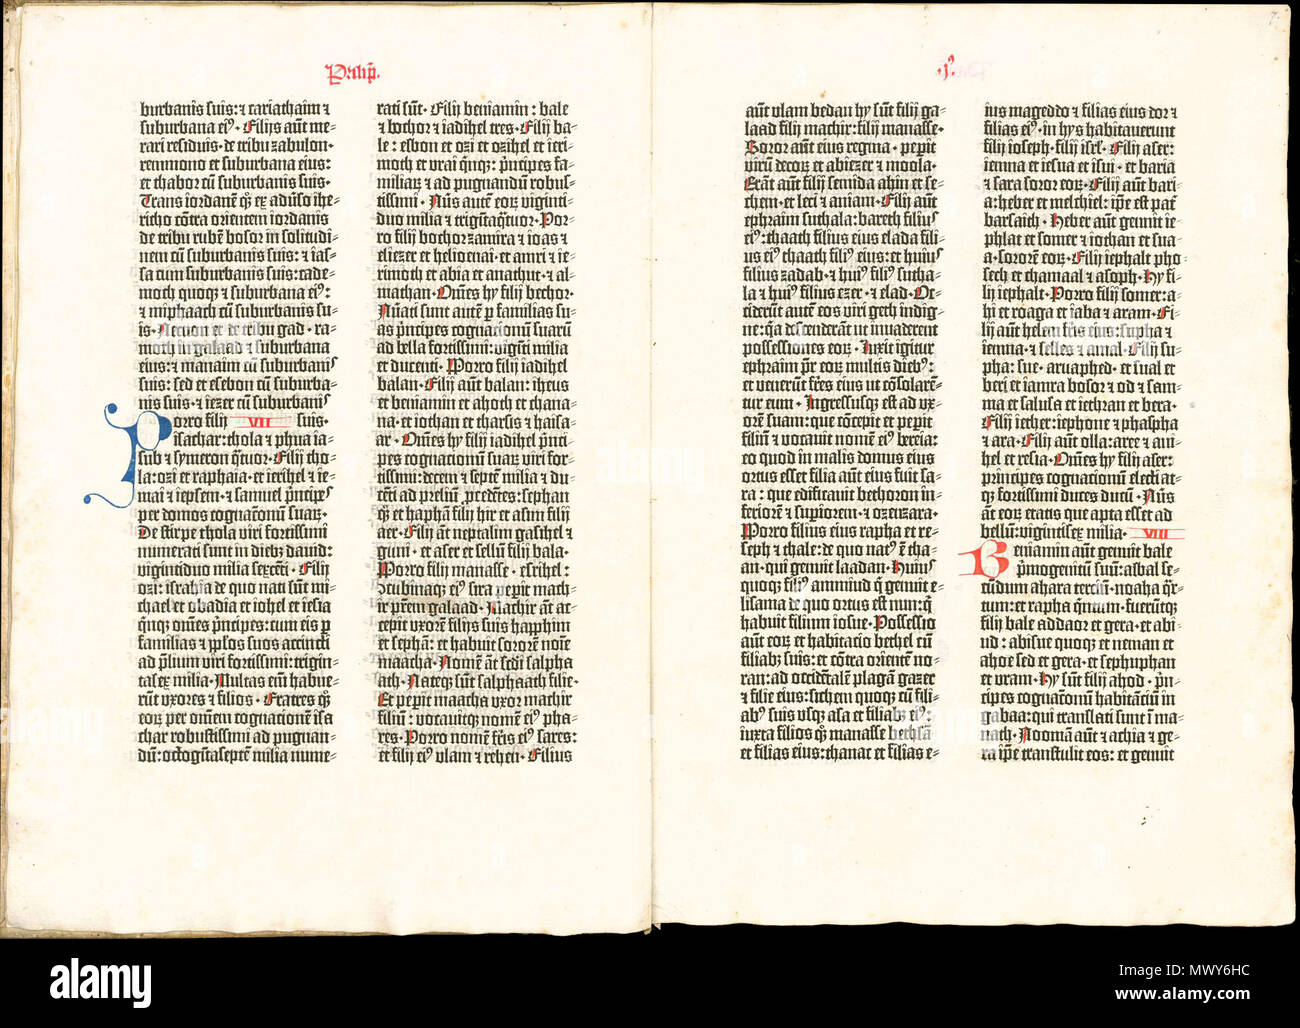 Paralip̄.
burbanis suis: ⁊ cariathaim ⁊
suburbana eiꝰ. Filijs aūt me-
rari residuis. de tribu zabulon.
remmono et suburbana eius:
et thabor cū suburbanis suis.
Trans iordanē qꝫ ex aduso ihe-
richo cōtra orientem iordanis
de tribu rubē bosor in solitudi-
nem cū suburbanis suis: ⁊ ias-
sa cum suburbanis suis: cade-
moth quoqꝫ ⁊ suburbana eiꝰ:
⁊ miphaath cū suburbanis su-
is. Necnon et de tribu gad. ra-
moth in galaad ⁊ suburbana
eius: ⁊ manaim cū suburbanis
suis: sed et esebon cū suburba-
nis suis. ⁊ iezer cū suburbanis
suis. VII
Porro filij
isachar: thola ⁊ phua ia-
sub ⁊ symeron q̄tuor. Filij tho-
la: ozi et raphaia. et ierihel ⁊ ie-
mai ⁊ iepsem. ⁊ samuel p̄ncipes
per domos cognac̄onū suaꝝ.
De stirpe thola viri fortissimi
numerati sunt in diebꝫ dauid:
vigintiduo milia sexcēti. Filij
ozi: israhia de quo nati sūt mi-
chael et obadia et iohel et iesia
q̄nqꝫ om̄es p̄ncipes: cum eis ꝑ
familias ⁊ ip̄sos suos accincti
ad p̄lium viri fortissimi: trigin-
tasex milia. Multas em̄ habue-
rūt vxores ⁊ filios. Fratres qꝫ
eoꝝ per om̄em cognacionē isa
char robustissimi ad pugnan-
dū: octogītaseptē milia nume-
rati sūt. Filij beniamin: bale
⁊ bochor ⁊ iadihel tres. Filij ba-
le: esbon et ozi et ozihel et ieri-
moth et vrai q̄nqꝫ: p̄ncipes fa-
miliaꝝ ⁊ ad pugnandū robus-
tissimi. Nūs autē eoꝝ viginti-
duo milia ⁊ trigītaq̄tuor. Por-
ro filij bochor zamira ⁊ ioas ⁊
eliezer et helioenai. et amri ⁊ ie-
rimoth et abia et anathut. ⁊ al-
mathan. Om̄es hij filij bechor.
Nūati sunt autē ꝑ familias su-
as p̄ncipes cognationū suarū
ad bella fortissimi: vigīti milia
et ducenti. Porro filij iadihel
balan. Filij aūt balan: iheus
et beniamin et ahoth et chana-
na. et iothan et tharsis ⁊ haisa-
ar. Om̄es hij filij iadihel p̄nci
pes cognationū suaꝝ viri for-
tissimi: decem ⁊ septē milia ⁊ du-
cēti ad preliū ꝓcedētes: sephan
qꝫ et haphā filij hir et asim filij
aer. Filij āt neptalim gasihel ⁊
guni. et aser et sellū filij bala.
Porro filij manasse. esrihel:
Ꝯcubinaqꝫ eiꝰ sira peperit mach-
ir pr̄em galaad. Machir āt ac-
cepit vxorē filijs suis happhim
et sephā: et habuit sororē noīe
maacha. Nomē āt sedi salpha
ath. Natęqꝫ sūt salphaath filie.
Et peperit maacha vxor machir
filiū: vocauitqꝫ nomē eiꝰ pha-
res. Porro nomē fr̄is eiꝰ sares:
et filij eiꝰ vlam ⁊ rechen. Filius
.jꝰ
7.
aūt vlam bedan hij sūt filij ga-
laad filij machir: filij manasse.
Soror aūt eius regina. peperit
virū decoꝝ et abiezer ⁊ moola.
Erāt aūt filij semida ahin et se-
chem. et leci ⁊ aniam. Filij aūt
ephraim suthala: bareth filius
eiꝰ: thaath filius eius elada fili-
us eiꝰ thaath filiꝰ eius: et huius
filius zadab. ⁊ huiꝰ filiꝰ sutha-
la ⁊ huiꝰ filius ezer. ⁊ elad. Oc-
ciderūt autē eos viri geth indige-
ne: q̄a descenderāt ut inuaderent
possessiones eoꝝ. Luxit igitur
ephraim p̄r eoꝝ multis diebꝰ:
et venerūt fr̄es eius ut cōsolarē-
tur eum. Ingressusqꝫ est ad vx-
orē suam: que cōcepit et peperit
filiū ⁊ vocauit nomē eiꝰ bereia:
eo quod in malis domus eius
ortus esset filia aūt eius fuit sa-
ra: que edificauit bethoron in-
feriorē ⁊ supiorem. ⁊ ozenzara.
Porro filius eius rapha et re-
seph ⁊ thale: de quo natꝰ ē tha-
an. qui genuit laadan. Huius
quoqꝫ filiꝰ ammiud q̄ genuit e-
lisama de quo ortus est nun: q̄
habuit filium iosue. Possessio
aūt eoꝝ et habitatio bethel cū
filiabꝫ suis: et cōtra orientē no-
ran: ad occidētalē plagā gazer
⁊ filie eius: sichem quoqꝫ cū fili-
abꝰ suis vsqꝫ asa et filiabꝫ eiꝰ:
iuxta filios qꝫ manasse bethsā
et filias eius: thanat et filias e-
ius mageddo ⁊ filias eius dor ⁊
filias eiꝰ. in hijs habitauerunt
filij ioseph. filij isrl̄. Filij aser:
iemna et iesua et isui. et baria
⁊ sara soror eoꝝ. Filij aūt bari-
a: heber et melchiel: ip̄e est pat̄
barsaith. Heber aūt genuit ie-
phlat et somer ⁊ iothan et sua-
a. sororē eoꝝ. Filij iephalt pho-
sech et chamaal ⁊ asoph. Hij fi-
lij iephalt. Porro filij somer: a-
hi et roaga et iaba ⁊ aram. Fi-
lij aūt helem fr̄is eius: supha ⁊
iemna. ⁊ selles ⁊ amal. Filij su-
pha: sue. arnaphed. et sual et
beri et iamra bosor ⁊ od ⁊ sam-
ma et salusa et iethran et bera.
Filij iether: iephone ⁊ phaspha
⁊ ara. Filij aūt olla: aree ⁊ ani-
hel et resia. Om̄es hij filij aser:
principes cognationū electi at-
qꝫ fortissimi duces ducū. Nūs
āt eoꝝ etatis que apta esset ad
bellū: vigintisex milia. VIII
Beniamin aūt genuit bale
p̄mogenitū suū: asbal se-
cūdum ahara terciū. noaha q̄r-
tum: et rapha q̄ntum. fueruntqꝫ
filij bale addaor et gera. et abi-
ud: abisue quoqꝫ et neman et
ahoe sed et gera. et sephuphan
et vram. Hij sūt filij ahod. p̄n-
cipes cognationū habitāciū in
gabaa: qui translati sunt ī ma-
nath. Nooma aūt ⁊ achia ⁊ ge-
ra ip̄e transtulit eos: et genuit
alamy
Image ID: MWY6HC
www.alamy.com